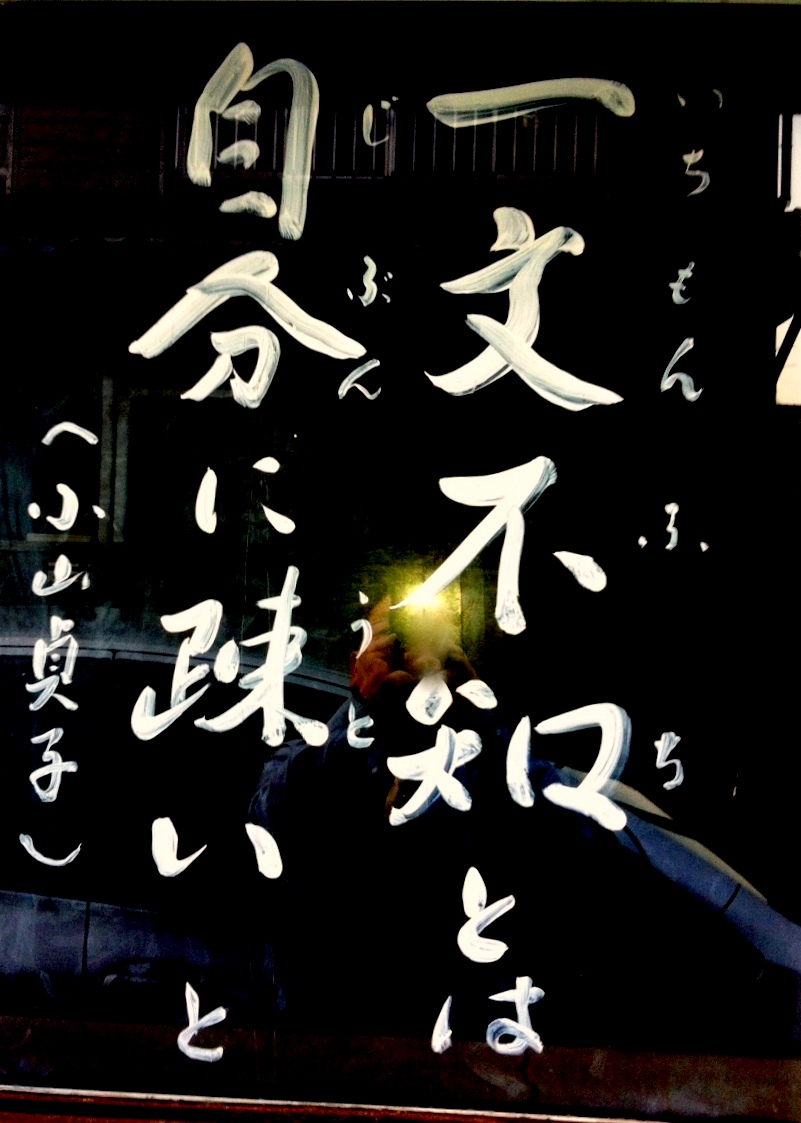 いちもんふち
一文不知とは
じぶんうと
自分に疎いと
(小山貞子)